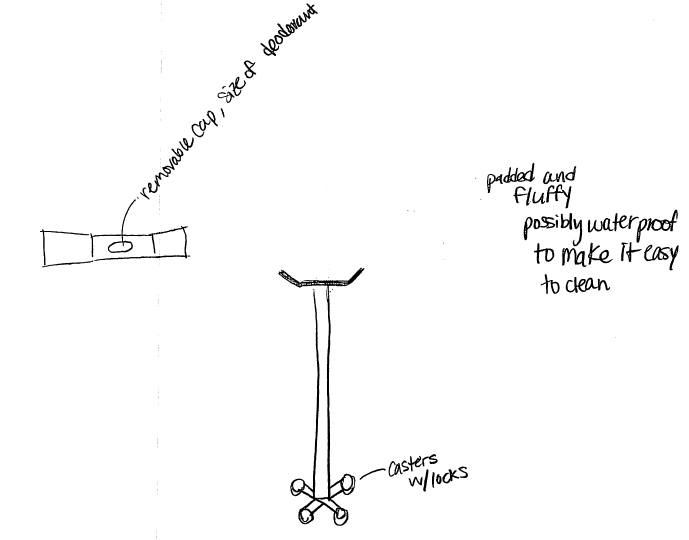 removable cap, size of deodorant
padded and
fluffy
possibly waterproof
to make it easy
to clean
casters
w/locks